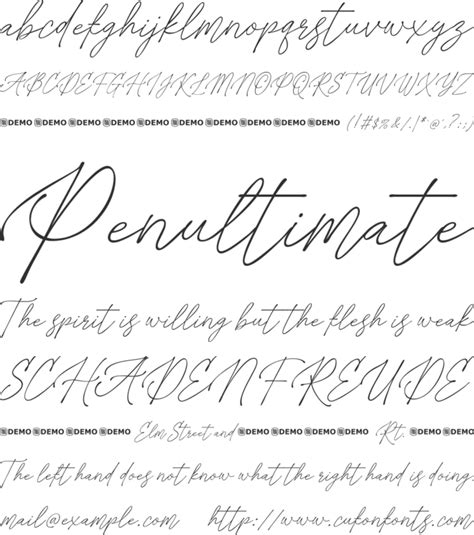 abcdefghijklmnopqrstuvwxyz
ABCDEFGHIJKLMNOPQRSTUVWXYZ
DEMO DEMO DEMO DEMO DEMO DEMO DEMO DEMO DEMO DEMO (!#$%&/\|*@`,?:;)
Penultimate
The spirit is willing but the flesh is weak
SCHADENFREUDE
DEMO DEMO DEMO DEMO Elm Street and DEMO DEMO DEMO DEMO Rt. DEMO DEMO
The left hand does not know what the right hand is doing.
mail@example.com http://www.cufonfonts.com